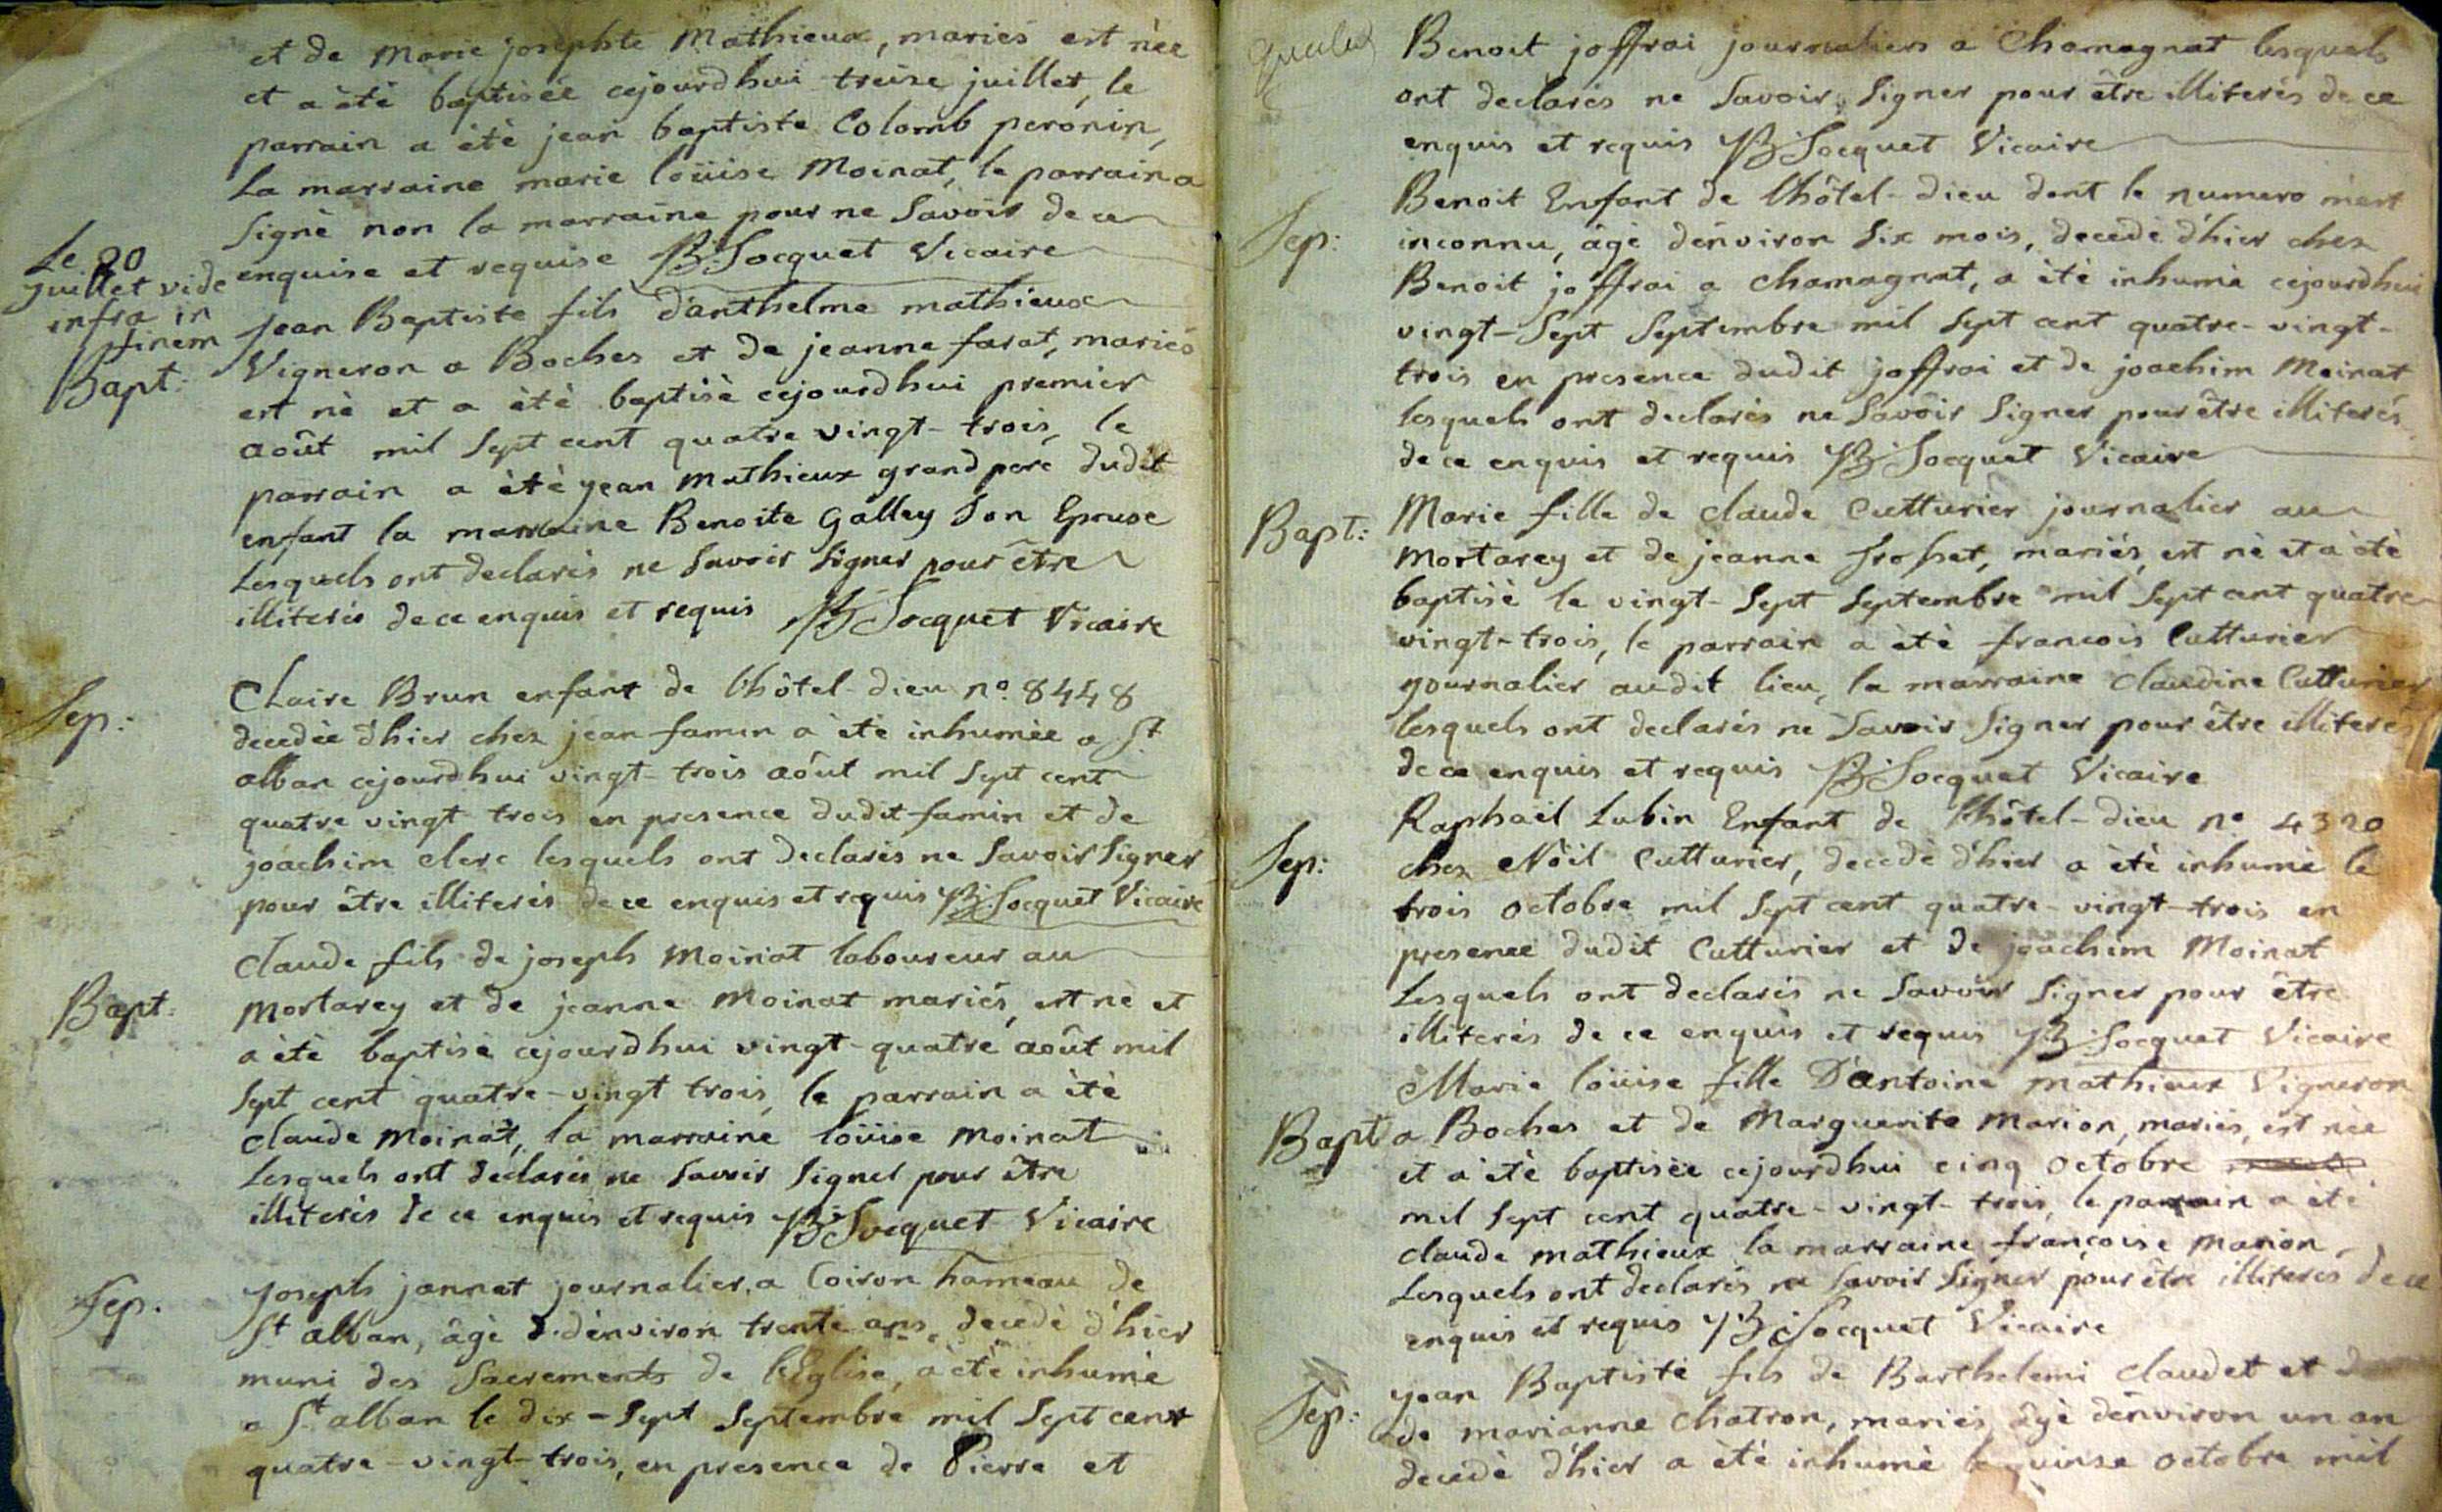 et de Marie josephte Mathieux, mariés est née
et a été baptisée cejourdhui treize juillet, le
parrain a été jean baptiste Colomb peronin,
La marraine marie loüise Moinat, le parrain a
Signé non la marraine pour ne Savoir de ce
enquise et requise JB Socquet Vicaire
Le 20
juillet vide
infra in
finem
Bapt:
Jean Baptiste fils d'anthelme mathieux
Vigneron a Boches et de jeanne farat, mariés
est né et a été baptisé cejourdhui premier
août mil Sept cent quatre vingt-trois, le
parrain a été jean Mathieux grand pere dudit
enfant la marraine Benoite Galley Son Epouse
Lesquels ont declarés ne Savoir Signer pour être
illiterés de ce enquis et requis JB Socquet Vicaire
Sep:
Claire Brun enfant de l'hôtel-dieu n° 8448
decedée d'hier chez jean famin a été inhumée a St
alban cejourdhui vingt-trois août mil Sept cent
quatre vingt trois en presence dudit famin et de
joachim clerc lesquels ont declarés ne Savoir Signer
pour être illiterés de ce enquis et requis JB Socquet Vicaire
Bapt:
Claude fils de joseph Moinat laboureur au
Mortarey et de jeanne Moinat mariés, est né et
a été baptisé cejourdhui vingt-quatre août mil
Sept cent quatre-vingt trois, le parrain a été
Claude Moinat, la marraine loüise Moinat
Lesquels ont declarés ne Savoir Signer pour être
illiterés de ce enquis et requis JB Socquet Vicaire
Sep.
Joseph jannet journalier a Coiron hameau de
St alban, âgé d'environ trente ans, decedé d'hier
muni des Sacrements de l'Eglise, a été inhumé
a St alban le dix-Sept Septembre mil Sept cent
quatre-vingt-trois, en presence de Pierre et
Benoit joffrai journaliers a Chamagnat lesquels
ont declarés ne Savoir Signer pour être illiterés de ce
enquis et requis JB Socquet Vicaire
Sep:
Benoit Enfant de l'hôtel-dieu dont le numero m'est
inconnu, âgé d'environ Six mois, decedé d'hier chez
Benoit joffrai a Chamagnat, a été inhumé cejourdhui
vingt-Sept Septembre mil Sept cent quatre-vingt-
trois en presence dudit joffrai et de joachim Moinat
lesquels ont declarés ne Savoir Signer pour être illiterés
de ce enquis et requis JB Socquet Vicaire
Bapt:
Marie fille de claude Cutturier journalier au
Mortarey et de jeanne mariés, est né et a été
baptisé le vingt-Sept Septembre mil Sept cent quatre
vingt-trois, le parrain a été francois Cutturier
journalier audit lieu, la marraine Claudine Cutturier
lesquels ont declarés ne Savoir Signer pour être illiterés
de ce enquis et requis JB Socquet Vicaire
Sep:
Raphaël Lubin Enfant de l'hôtel-dieu n° 4320
chez Nöil Cutturier, decedé d'hier a été inhumé le
trois octobre mil Sept cent quatre-vingt-trois en
presence dudit Cutturier et de joachim Moinat
Lesquels ont declarés ne Savoir Signer pour être
illiterés de ce enquis et requis JB Socquet Vicaire
Bapt
Marie loüise fille D'antoine Mathieux Vigneron
a Boches et de Marguerite Marion, mariés, est née
et a été baptisée cejourdhui cinq octobre
mil Sept cent quatre-vingt-trois, le parrain a été
claude mathieux la marraine françoise Marion
Lesquels ont declarés ne Savoir Signer pour être illiterés de ce
enquis et requis JB Socquet Vicaire
Sep:
jean Baptiste fils de Barthelemi claudet et
de marianne Chatron, mariés, âgé d'environ un an
decedé d'hier a été inhumé le quinse octobre mil